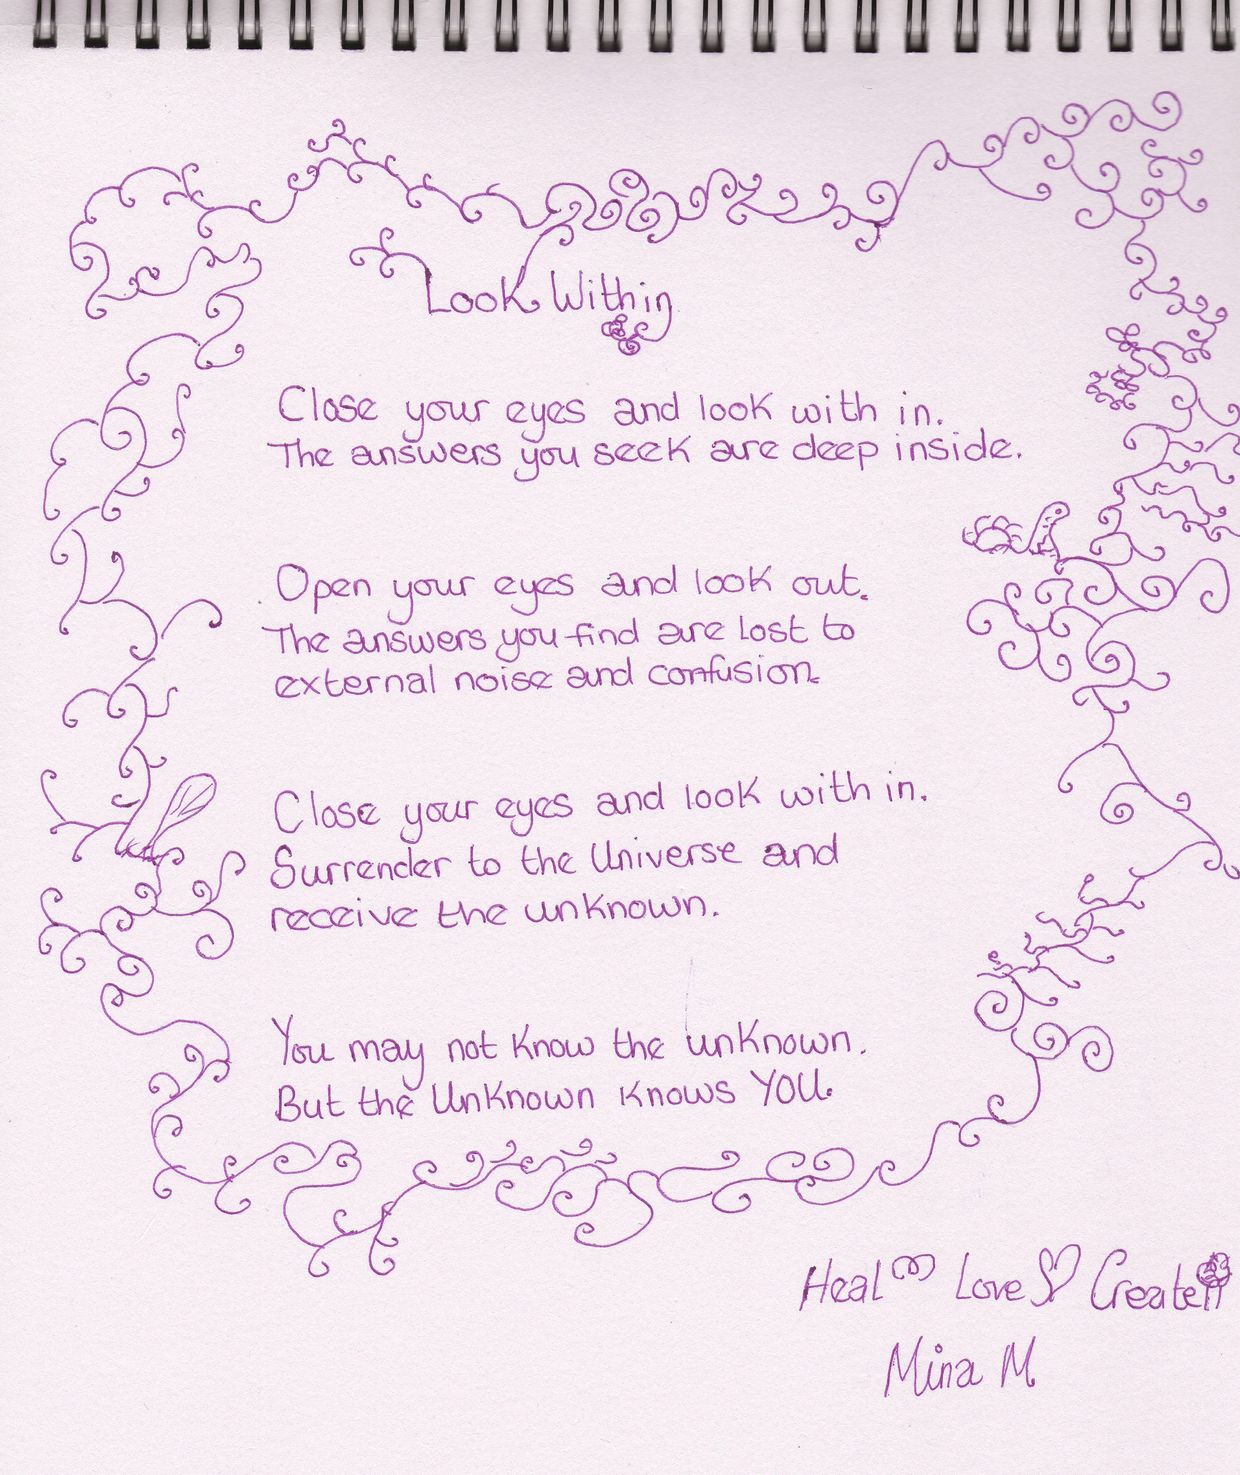 Look Within
Close your eyes and look with in.
The answers you seek are deep inside.
Open your eyes and look out.
The answers you find are lost to
external noise and confusion.
Close your eyes and look with in.
Surrender to the Universe and
receive the unknown.
You may not know the unknown.
But the Unknown knows YOU.
Heal Love Create
Mina M